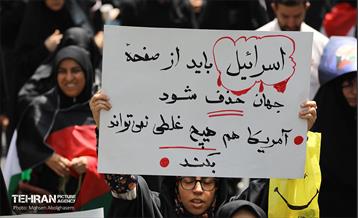 اسرائیل باید از صفحهٔ
جهان حذف شود
آمریکا هم هیچ غلطی نمی‌تواند
بکند
TEHRAN PICTURE AGENCY
Photo: Mohsen Abolghasem